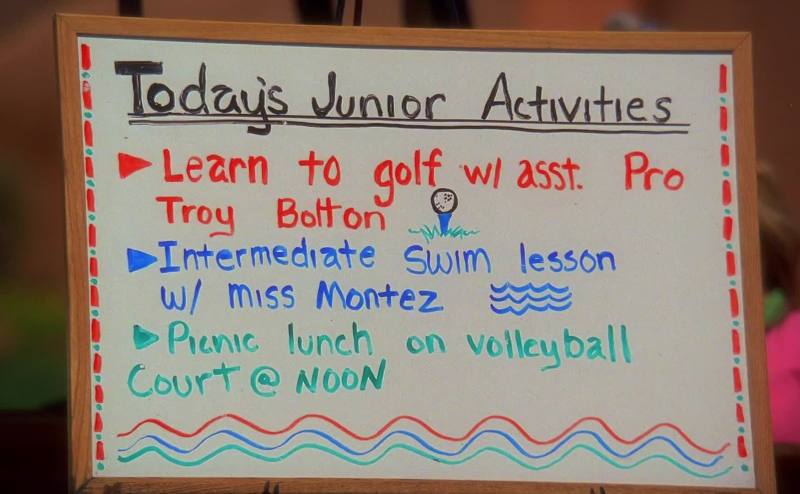 Today's Junior Activities
Learn to golf w/ asst. Pro
Troy Bolton
Intermediate swim lesson
w/ miss Montez
Picnic lunch on volleyball
Court @ NOON